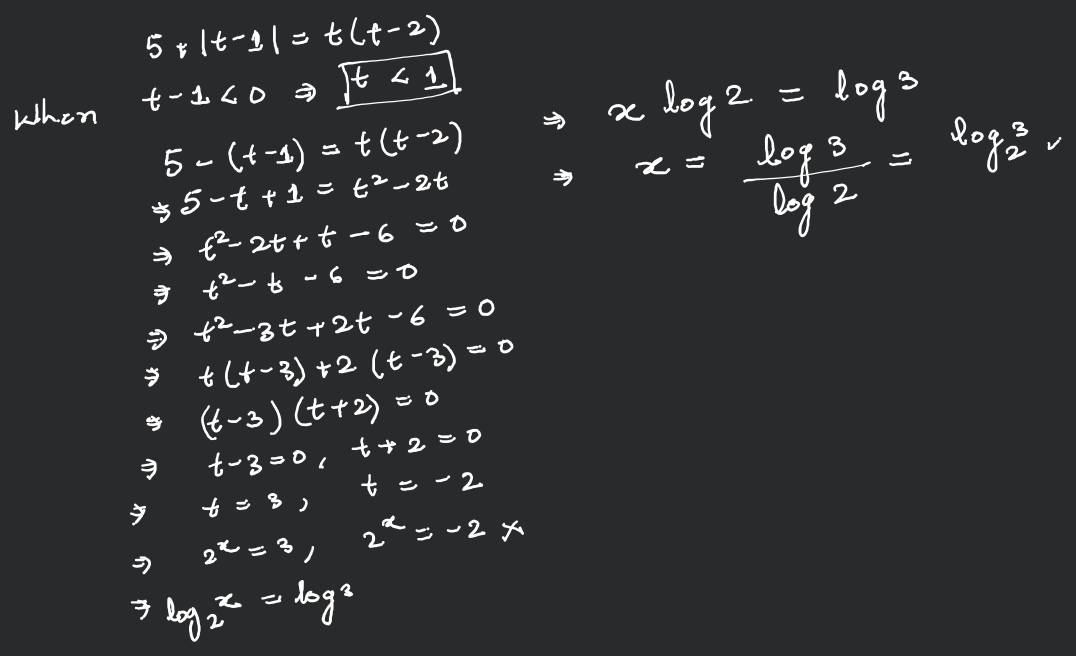 5 + |t-1| = t(t-2)
When t-1<0 ⇒ t < 1
5 - (t-1) = t(t-2)
⇒ 5-t+1 = t²-2t
⇒ t²-2t+t-6 = 0
⇒ t²-t-6 = 0
⇒ t²-3t+2t-6 = 0
⇒ t(t-3)+2(t-3) = 0
⇒ (t-3)(t+2) = 0
⇒ t-3=0, t+2=0
⇒ t = 3, t = -2
⇒ 2ˣ = 3, 2ˣ = -2 ×
⇒ log 2ˣ = log 3
⇒ x log 2 = log 3
⇒ x = log 3 / log 2 = log₂ 3 ✓